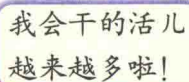 我会干的活儿
越来越多啦！